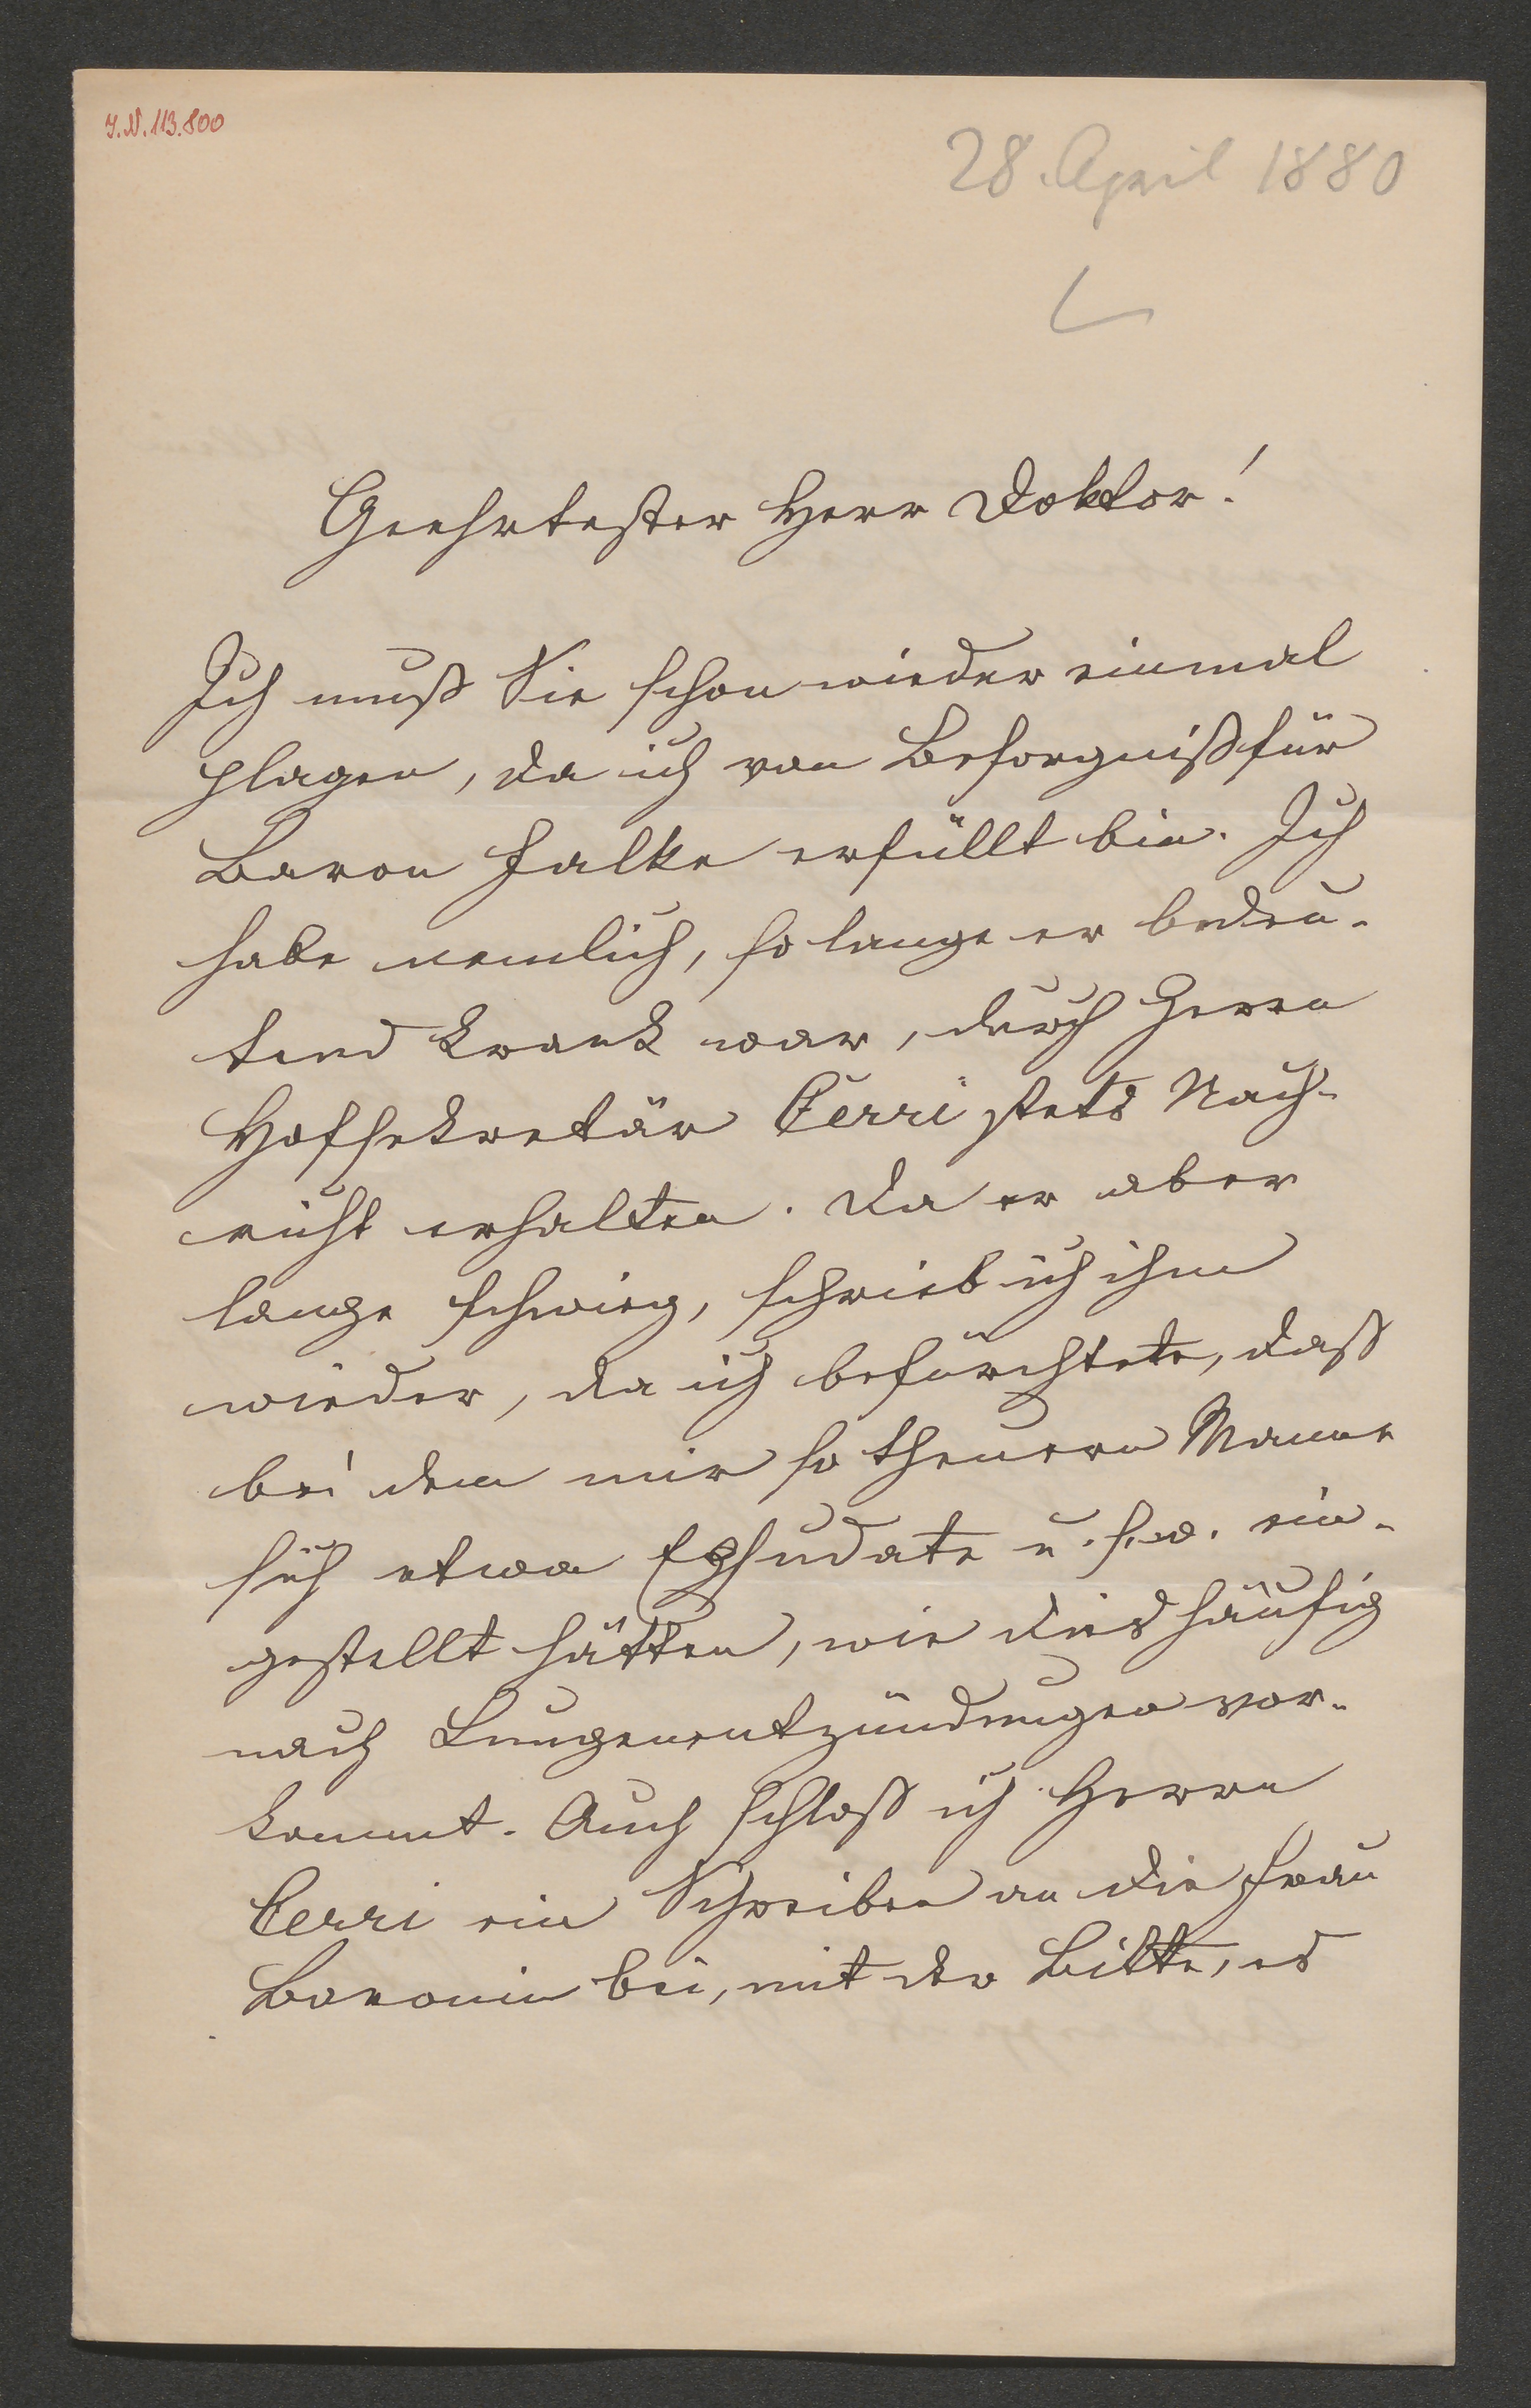 I.N. 113.800
28. April 1880
Geehrtester Herr Doktor!
Ich muß Sie schon wieder einmal
plagen, da ich von Besorgniß für
Baron Falke erfüllt bin. Ich
habe nemlich, so lange er bedeu-
tend krank war, durch Herrn
Hofsekretär Cerri stets Nach-
richt erhalten. Da er aber
lange schwieg, schrieb ich ihm
wieder, da ich befürchtete, dass
bei dem mir so theueren Manne
sich etwa Exsudate u. s. w. ein-
gestellt hätten, wie dies häufig
nach Lungenentzündungen vor-
kommt. Auch schloss ich Herrn
Cerri ein Schreiben an die Frau
Baronin bei, mit der Bitte, es